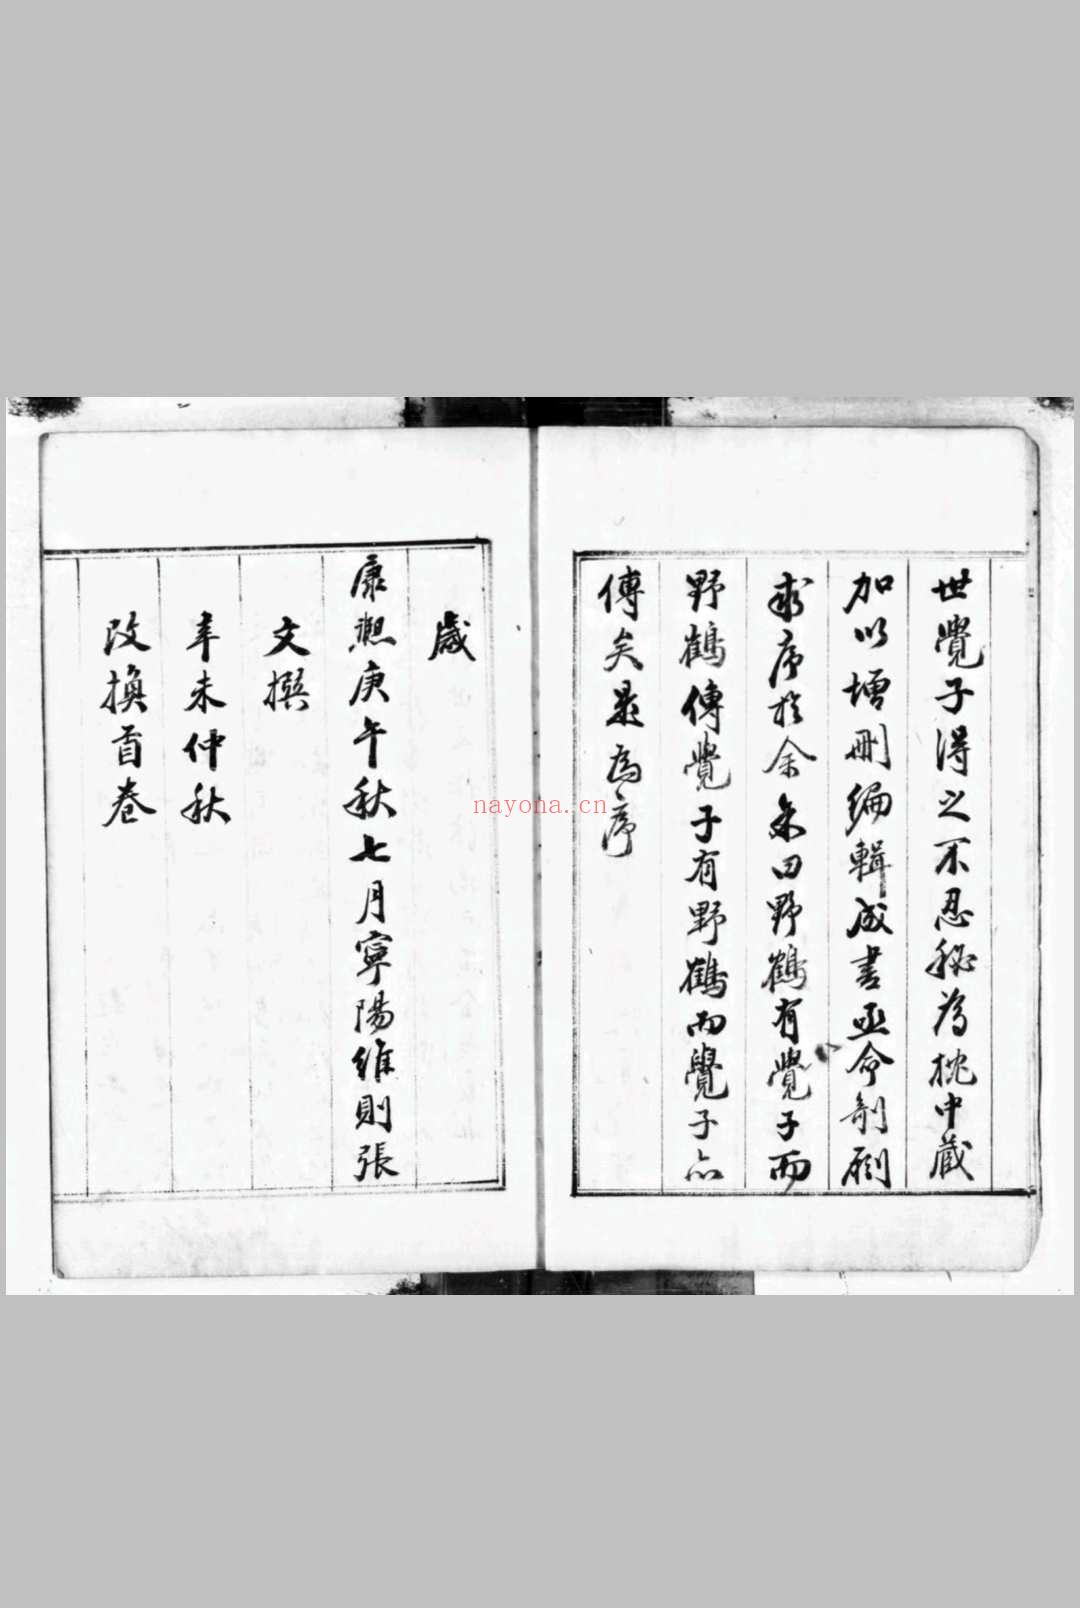 世覺子得之不忍秘為枕中藏
加以增刪編輯成書亟命剞劂
求序於余余曰野鶴有覺子而
野鶴傳覺子有野鶴而覺子亦
傳矣是為序
歲
康熙庚午秋七月寧陽維則張
文撰
辛未仲秋
改換首卷
nayona.cn